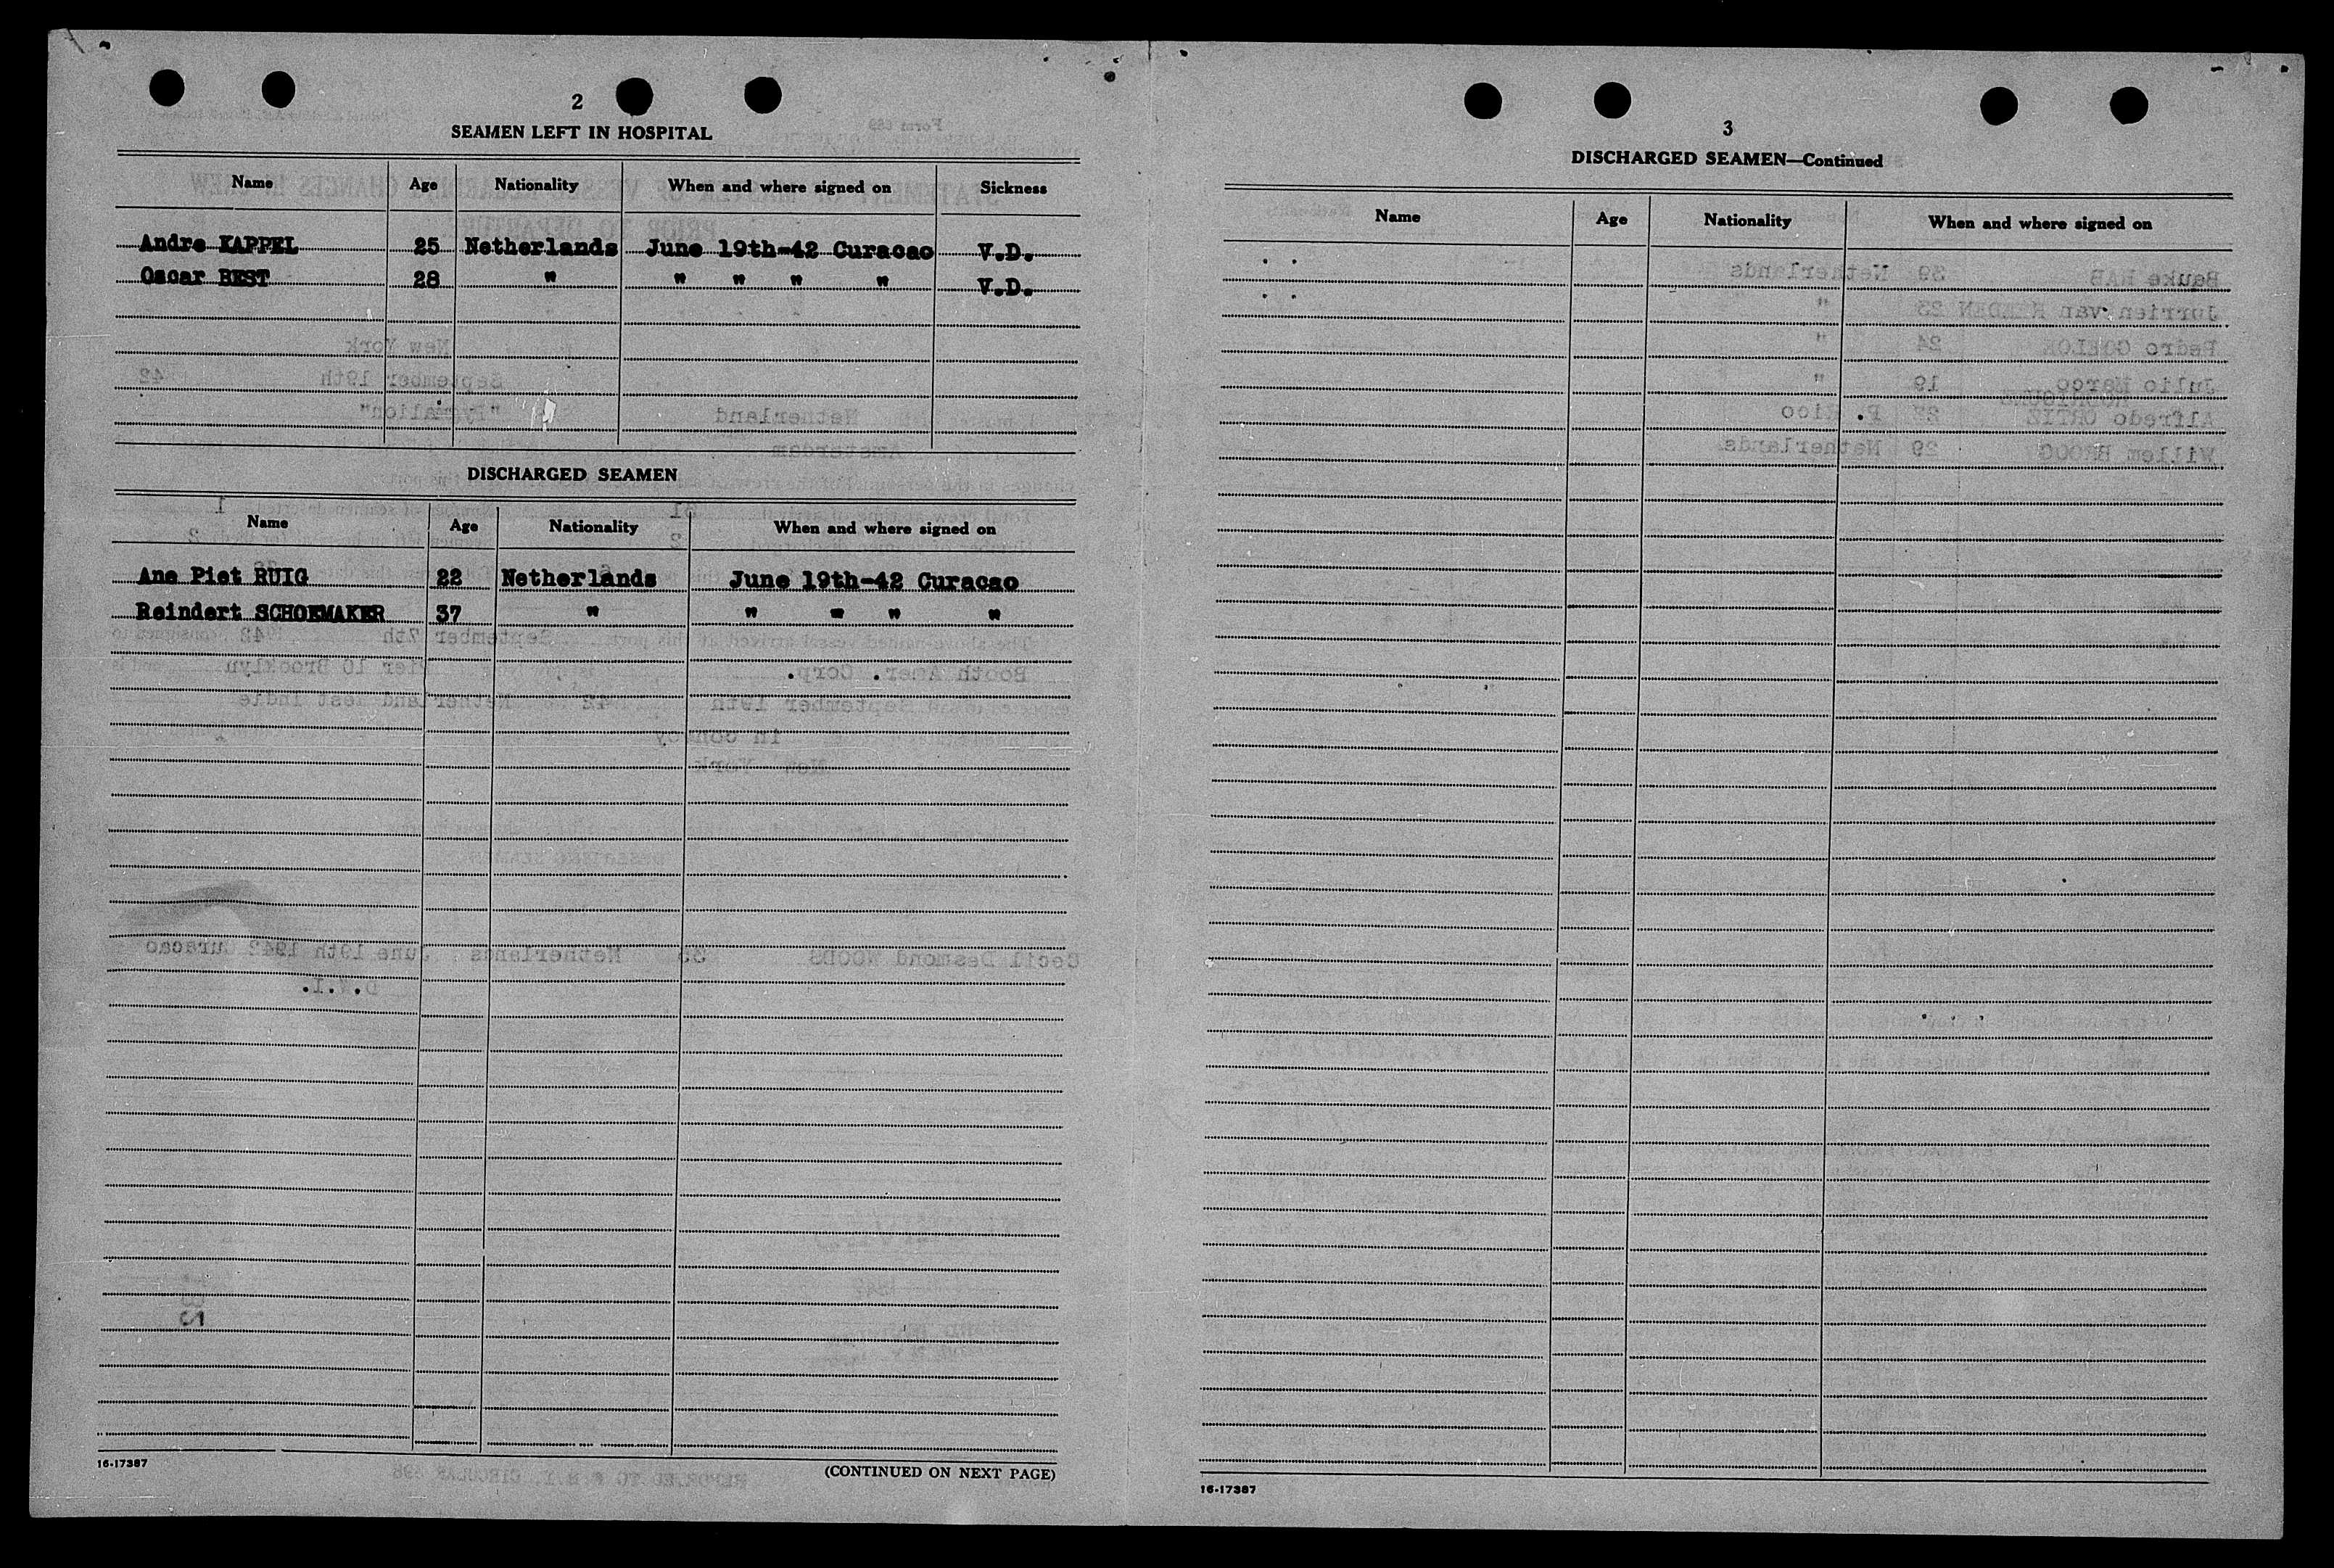 2
SEAMEN LEFT IN HOSPITAL
Name Age Nationality When and where signed on Sickness
Andre KAPPEL 25 Netherlands June 19th-42 Curacao V.D.
Oscar BEST 28 " " " " " V.D.
DISCHARGED SEAMEN
Name Age Nationality When and where signed on
Ane Piet RUIG 22 Netherlands June 19th-42 Curacao
Reindert SCHOEMAKER 37 " " " " "
16-17387
(CONTINUED ON NEXT PAGE)
3
DISCHARGED SEAMEN—Continued
Name Age Nationality When and where signed on
16-17387